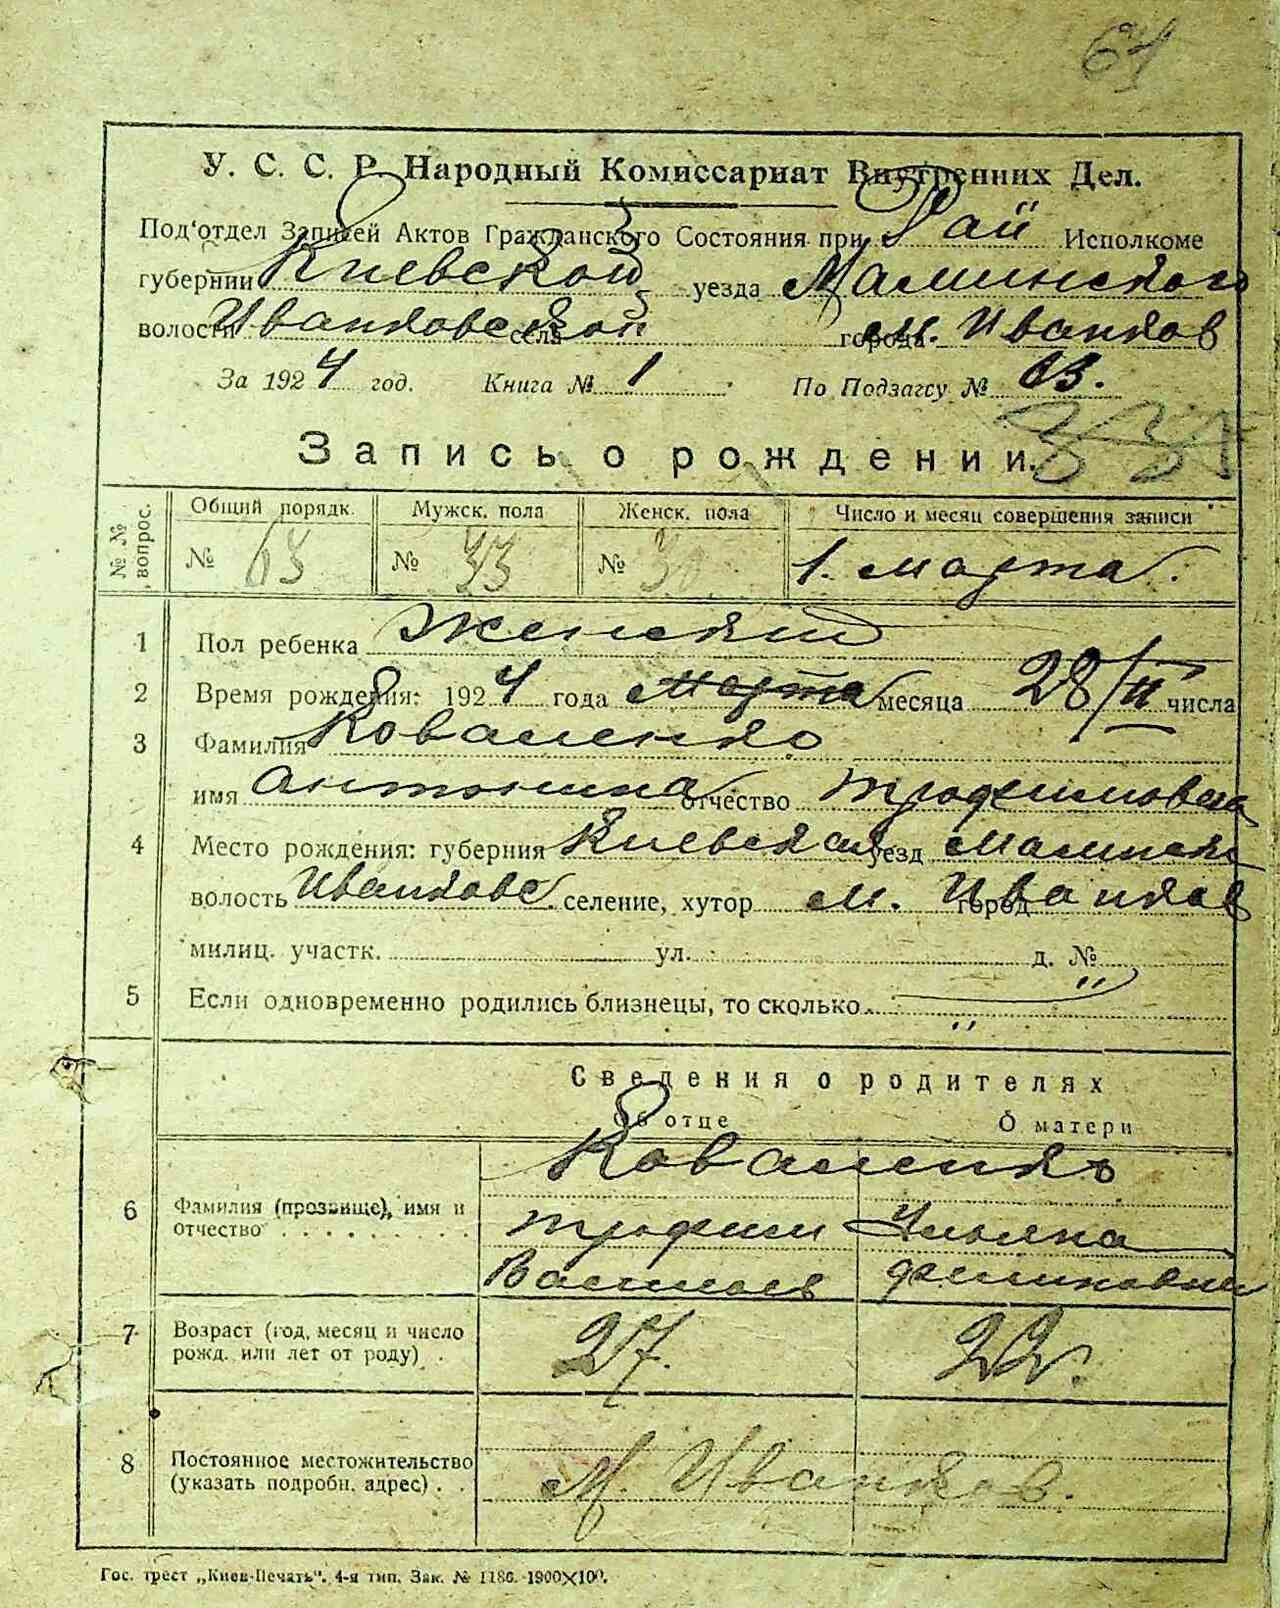 61
У. С. С. Р. Народный Комиссариат Внутренних Дел.
Под'отдел Записей Актов Гражданского Состояния при Рай Исполкоме
губернии Киевской уезда Малинского
волости Иванковской села города м. Иванков
За 1924 год. Книга № 1 По Подзагсу № 63.
Запись о рождении.
№ № вопрос. Общий порядк. Мужск. пола Женск. пола Число и месяц совершения записи
№ 63 № 33 № 30 1. марта.
1 Пол ребенка Женский
2 Время рождения: 1924 года марта месяца 28/II числа
3 Фамилия Коваленко
имя Антонина отчество Трофимовна
4 Место рождения: губерния Киевская уезд Малинск
волость Иванковс. селение, хутор м. Иванков город
милиц. участк. ул. д. №
5 Если одновременно родились близнецы, то сколько „
Сведения о родителях
Об отце О матери
Коваленко
6 Фамилия (прозвище), имя и отчество
Трофим Ульяна
Васильев Филиковна
7 Возраст (год, месяц и число рожд. или лет от роду) . 27. 22.
8 Постоянное местожительство (указать подробн. адрес) . . М. Иванков.
Гос. трест „Киев-Печать". 4-я тип. Зак. № 1186. 1900×100.